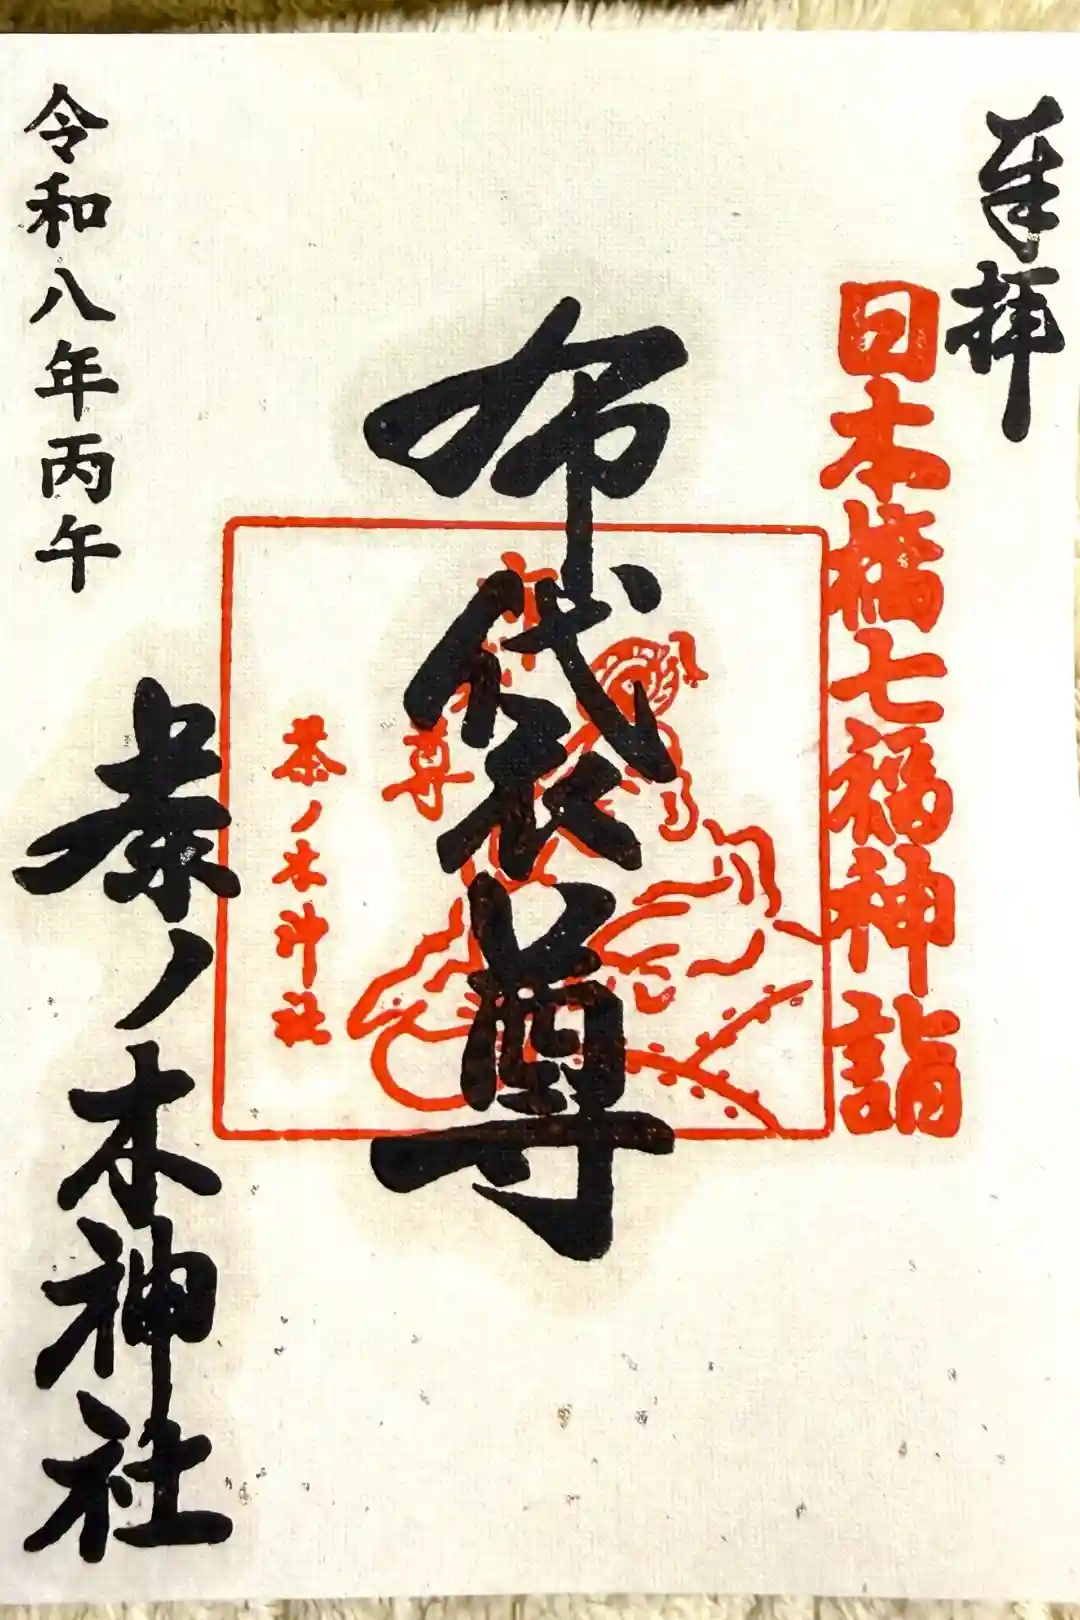 奉拝
日本橋七福神詣
布袋尊
布袋尊
茶ノ木神社
令和八年丙午
茶ノ木神社